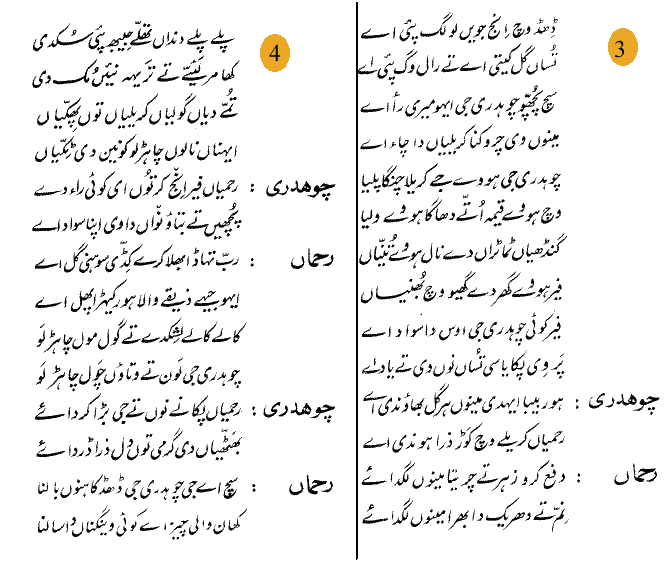 3
ڈِھڈ وِچ اِنج جویں لوگ پئی اے
تُساں گل کیتی اے تے رال وگ پئی اے
سچ پُچھو چوہدری جی ایہو میری راۓ اے
مینوں وی چروکنا کریلیاں دا چاء اے
چوہدری جی ہووے جے کریلا چنگا پلیا
وچ ہووے قیمہ اُتّے دھاگا ہووے ولیا
گنڈھیاں ٹماٹراں دے نال ہووے تُنیاں
فیر ہووے گھر دے گھیو وچ بُھنیاں
فیر کوئی چوہدری جی اوس دا سواد اے
پَروی پکایا سی تُساں نوں وی تے یاد اے
چوھدری : ہور بیبا ایہدی مینوں ہر گل بھاؤندی اے
رحمیاں کریلے وچ کوڑ ذرا ہوندی اے
رحماں : دفع کرو زہر تے چریتا مینوں لگدا اے
نِم تے دھریک دا بھرا مینوں لگدا اے
4
پلے پلے دنداں تھلے جیبھ پئی سُکدی
کھا مر لئیے تے تریہہ نئیں مُک دی
تُمّے دیاں گولیاں کریلیاں توں پِھکیّاں
ایہناں نالوں چاہڑ لو کونین دی ٹِکیّاں
چوھدری : رحمیاں فیر اِنج کر توُں ای کوئی راء دے
پُچھیں تے بتاؤنواں دا وی اپنا سواد اے
رحماں : ربّ تہاڈا بھلا کرے کِڈّی سوہنی گل اے
ایہو جیہے ذیقے والا ہور کیہڑا پھل اے
کالے کالے لِشکدے تے گول مول چاہڑ لَو
چوہدری جی لَون تے وتاؤں چَول چاہڑ لو
چوھدری : رحمیاں پکانے نوں تے جی بڑا کردا اے
بھَٹھّیاں دی گرمی توں دِل ذرا ڈردا اے
رحماں : سچ اے جی چوہدری جی ڈھڈ کاہنوں بالنا
کھان والی چیز اے کوئی وینگناں دا سالنا